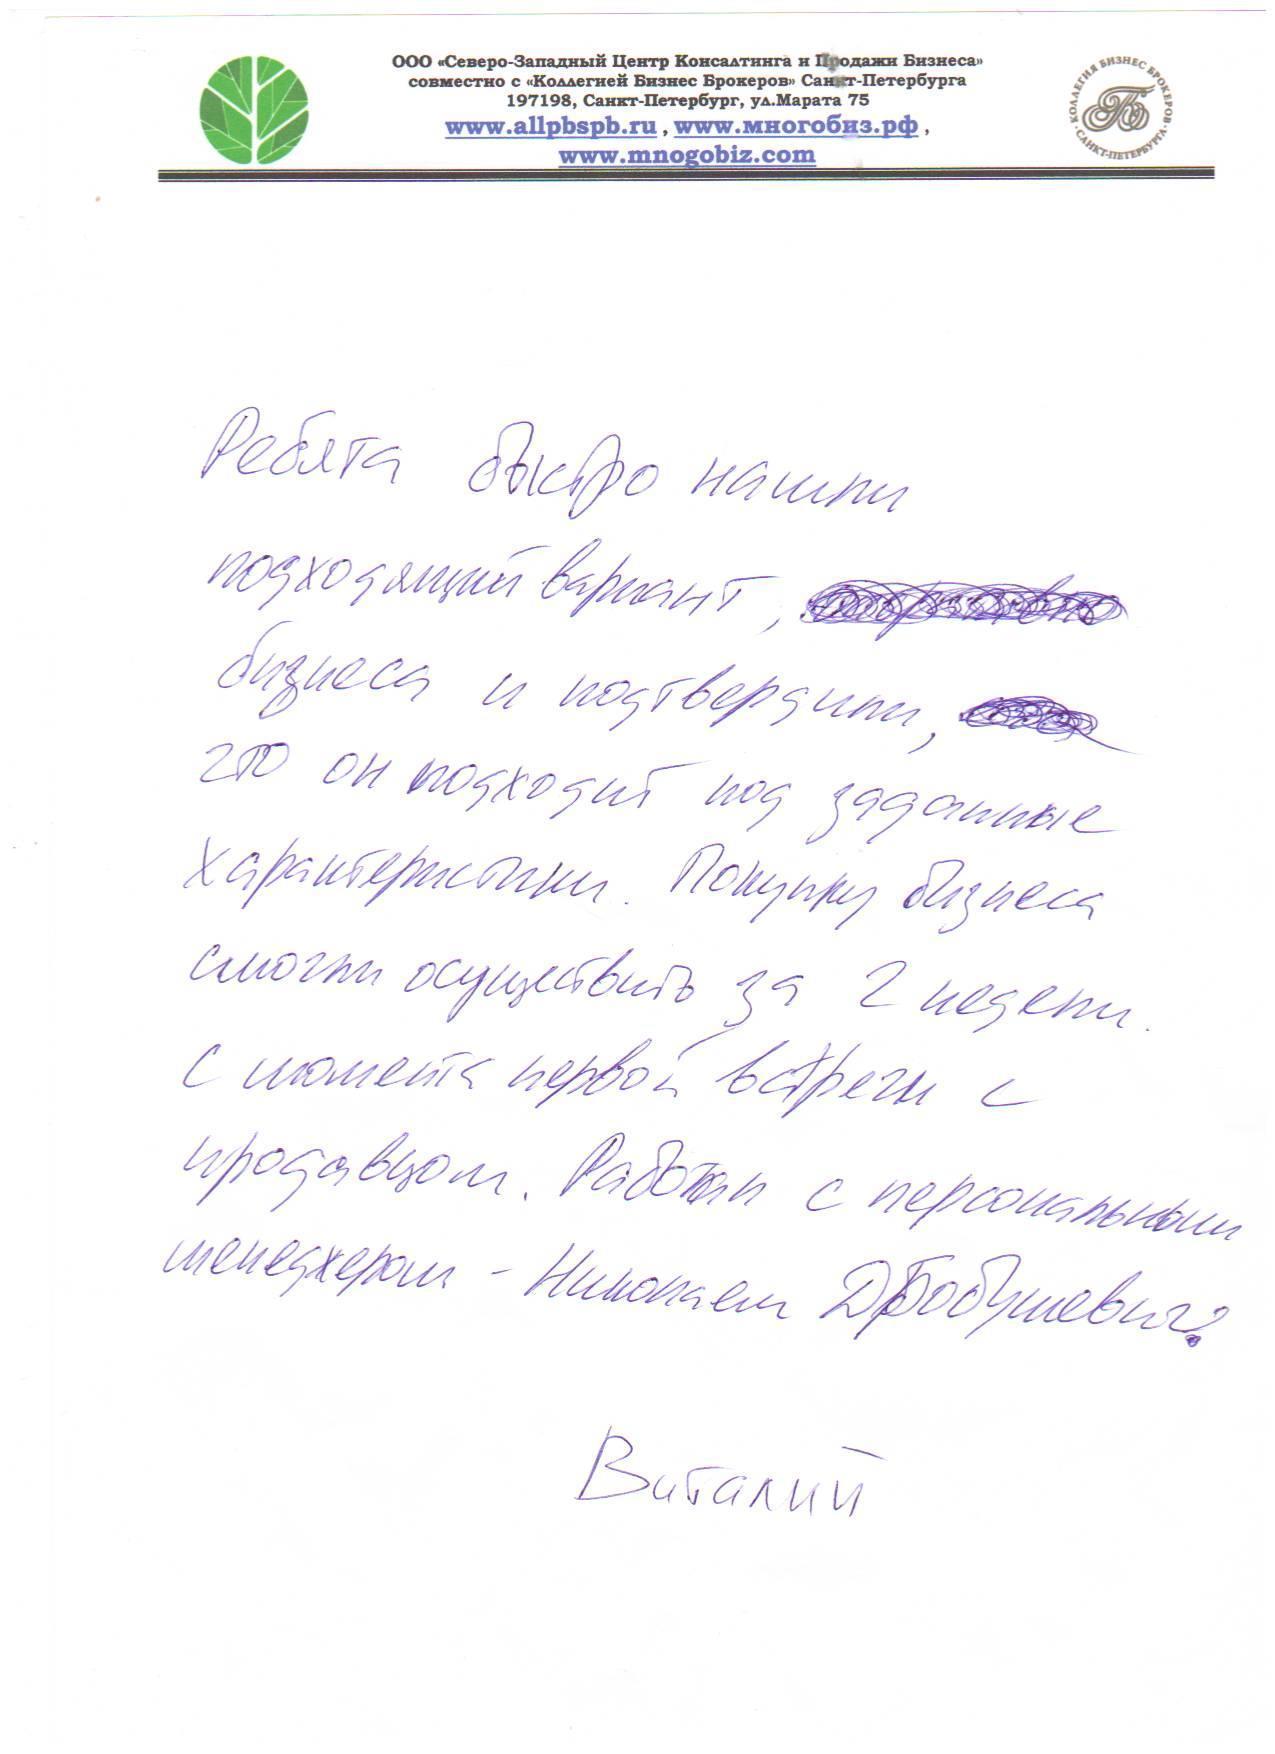 ООО «Северо-Западный Центр Консалтинга и Продажи Бизнеса»
совместно с «Коллегией Бизнес Брокеров» Санкт-Петербурга
197198, Санкт-Петербург, ул.Марата 75
www.allpbspb.ru , www.многобиз.рф ,
www.mnogobiz.com
КОЛЛЕГИЯ БИЗНЕС БРОКЕРОВ
САНКТ-ПЕТЕРБУРГА
Ребята быстро нашли
подходящий вариант,
бизнеса и подтвердили,
что он подходит под заданные
характеристики. Покупку бизнеса
смогли осуществить за 2 недели.
с момента первой встречи с
продавцом. Работал с персональным
менеджером - Николаем
Виталий